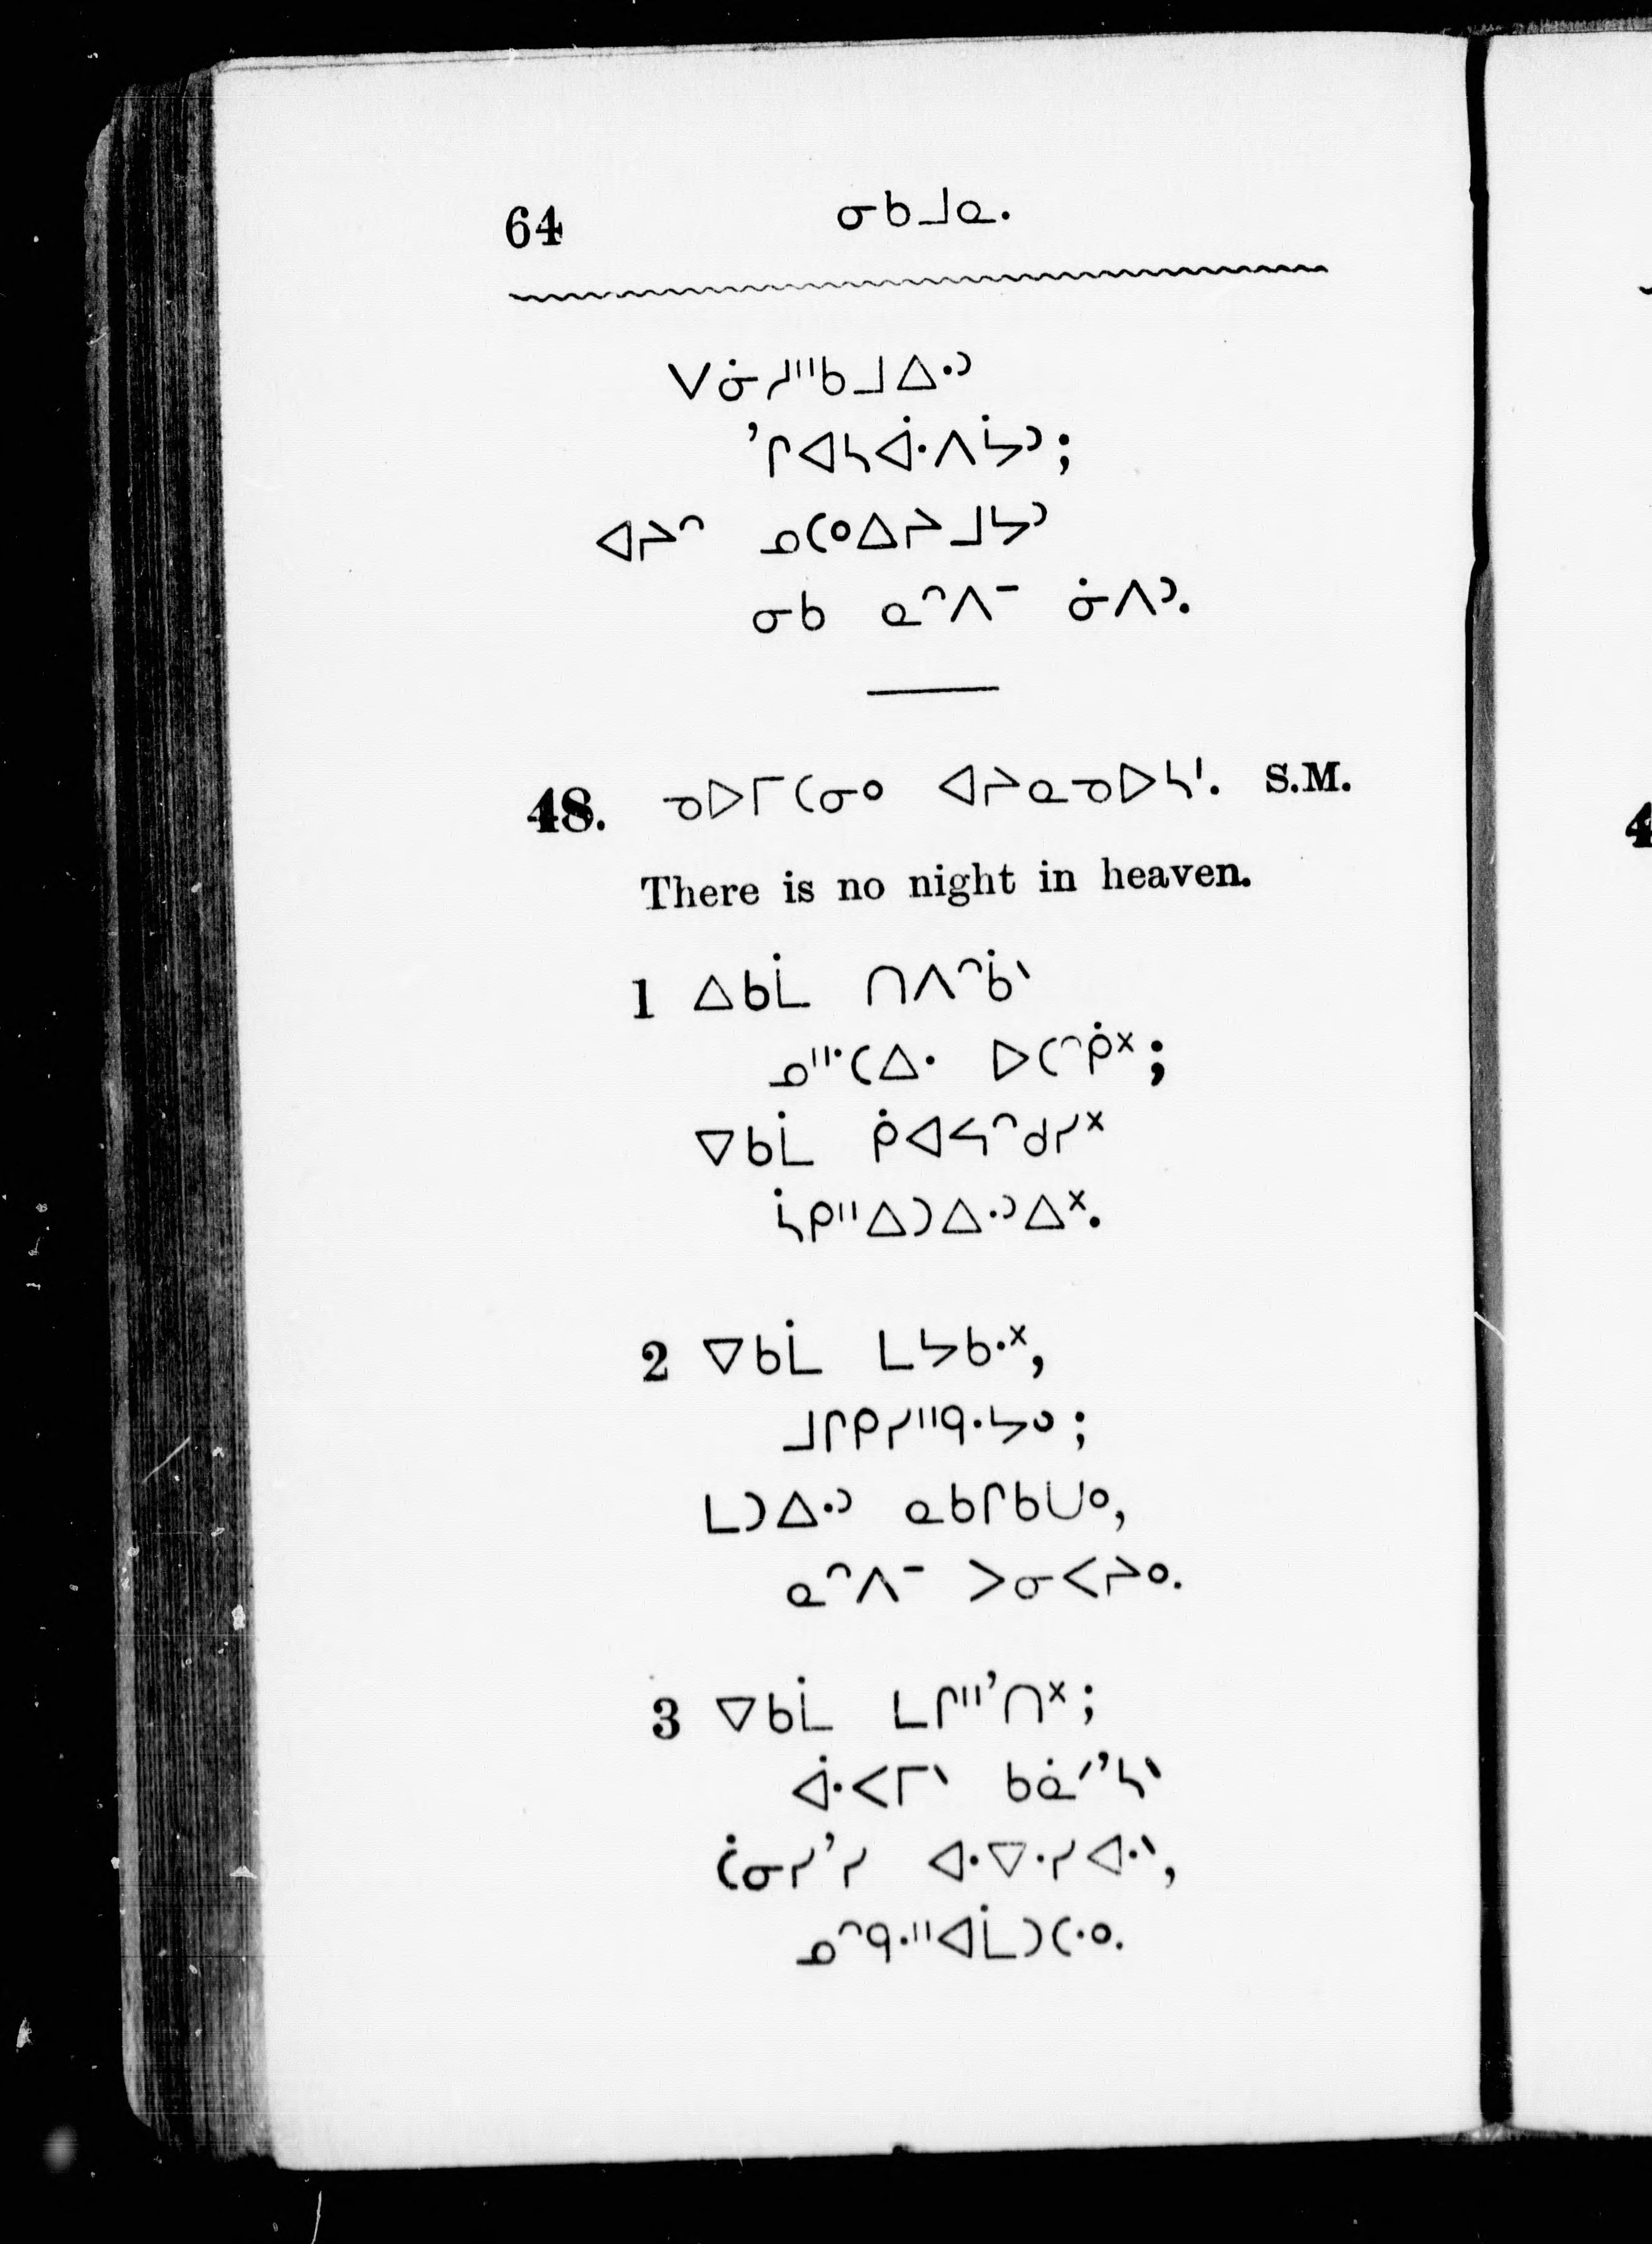 64 ᓂᑲᒧᓇ.
ᐯᓃᓯᐦᑲᒧᐃᐧᐣ
ʼᒋᐊᓴᐚᐱᔮᐣ;
ᐊᔨᐢ ᓄᑕᐤᐃᔨᒧᔭᐣ
ᓂᑲ ᓇᐢᐱᐨ ᓃᐱᐣ.
48. ᓀᐅᒥᑕᓂᐤ ᐊᔨᓇᓀᐅᓴᑊ. S.M.
There is no night in heaven.
1 ᐃᑲᒫ ᑎᐱᐢᑳᐠ
ᓄᐦᐧᑕᐃᐧ ᐅᑕᐢᑮᕽ;
ᐁᑲᒫ ᑮᐊᔦᐢᑯᓯᕽ
ᓵᑭᐦᐃᑐᐃᐧᐣᐃᕽ.
2 ᐁᑲᒫ ᒪᔭᑲᐧᕽ,
ᒧᒋᑭᓯᐦᑫᐧᔭᓗ;
ᒪᑐᐃᐧᐣ ᓇᑲᒋᑲᑌᐤ,
ᓇᐢᐱᐨ ᐳᓂᐸᔨᐤ.
3 ᐁᑲᒫ ᒪᒋᐦʼᑎᕽ;
ᐚᐸᒥᐠ ᑲᓈᐟʼᓴᐠ
ᑖᓂᓯʼᓯ ᐊᐧᐁᐧᓯᐊᐧᐠ,
ᓄᐢᑫᐧᐦᐊᒫᑐᑕᐧᐤ.